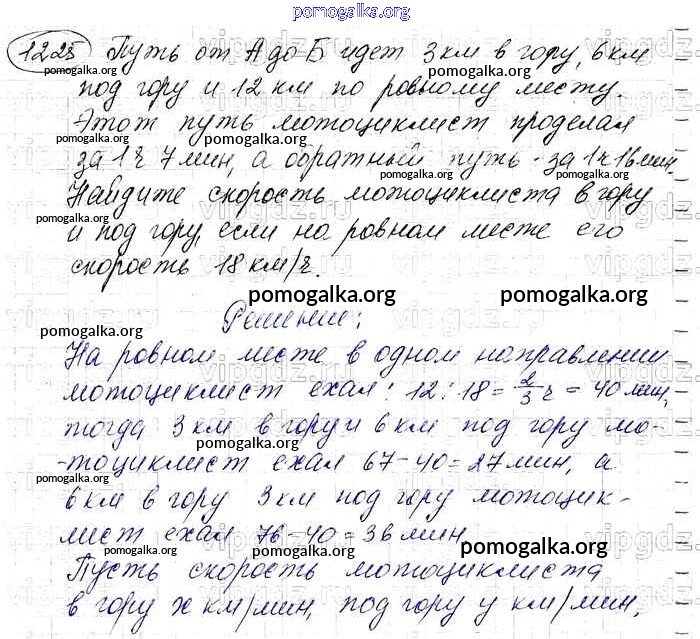 pomogalka.org
1225 Путь от А до Б идет 3 км в гору, 6 км
под гору и 12 км по ровному месту.
pomogalka.org
Этот путь мотоциклист проделал
pomogalka.org pomogalka.org
за 1 ч 7 мин, а обратный путь - за 1 ч 16 мин.
pomogalka.org pomogalka.org pomogalka.org
Найдите скорость мотоциклиста в гору
pomogalka.org pomogalka.org
и под гору, если на ровном месте его
скорость 18 км/ч.
pomogalka.org pomogalka.org
Решение:
pomogalka.org
На ровном месте в одном направлении
мотоциклист ехал: 12 : 18 = 2/3 ч = 40 мин,
тогда 3 км в гору и 6 км под гору мо-
pomogalka.org
-тоциклист ехал 67-40=27 мин, а
pomogalka.org
6 км в гору 3 км под гору мотоцик-
лист ехал 76-40=36 мин.
pomogalka.org pomogalka.org pomogalka.org
Пусть скорость мотоциклиста
pomogalka.org
в гору x км/мин, под гору y км/мин,